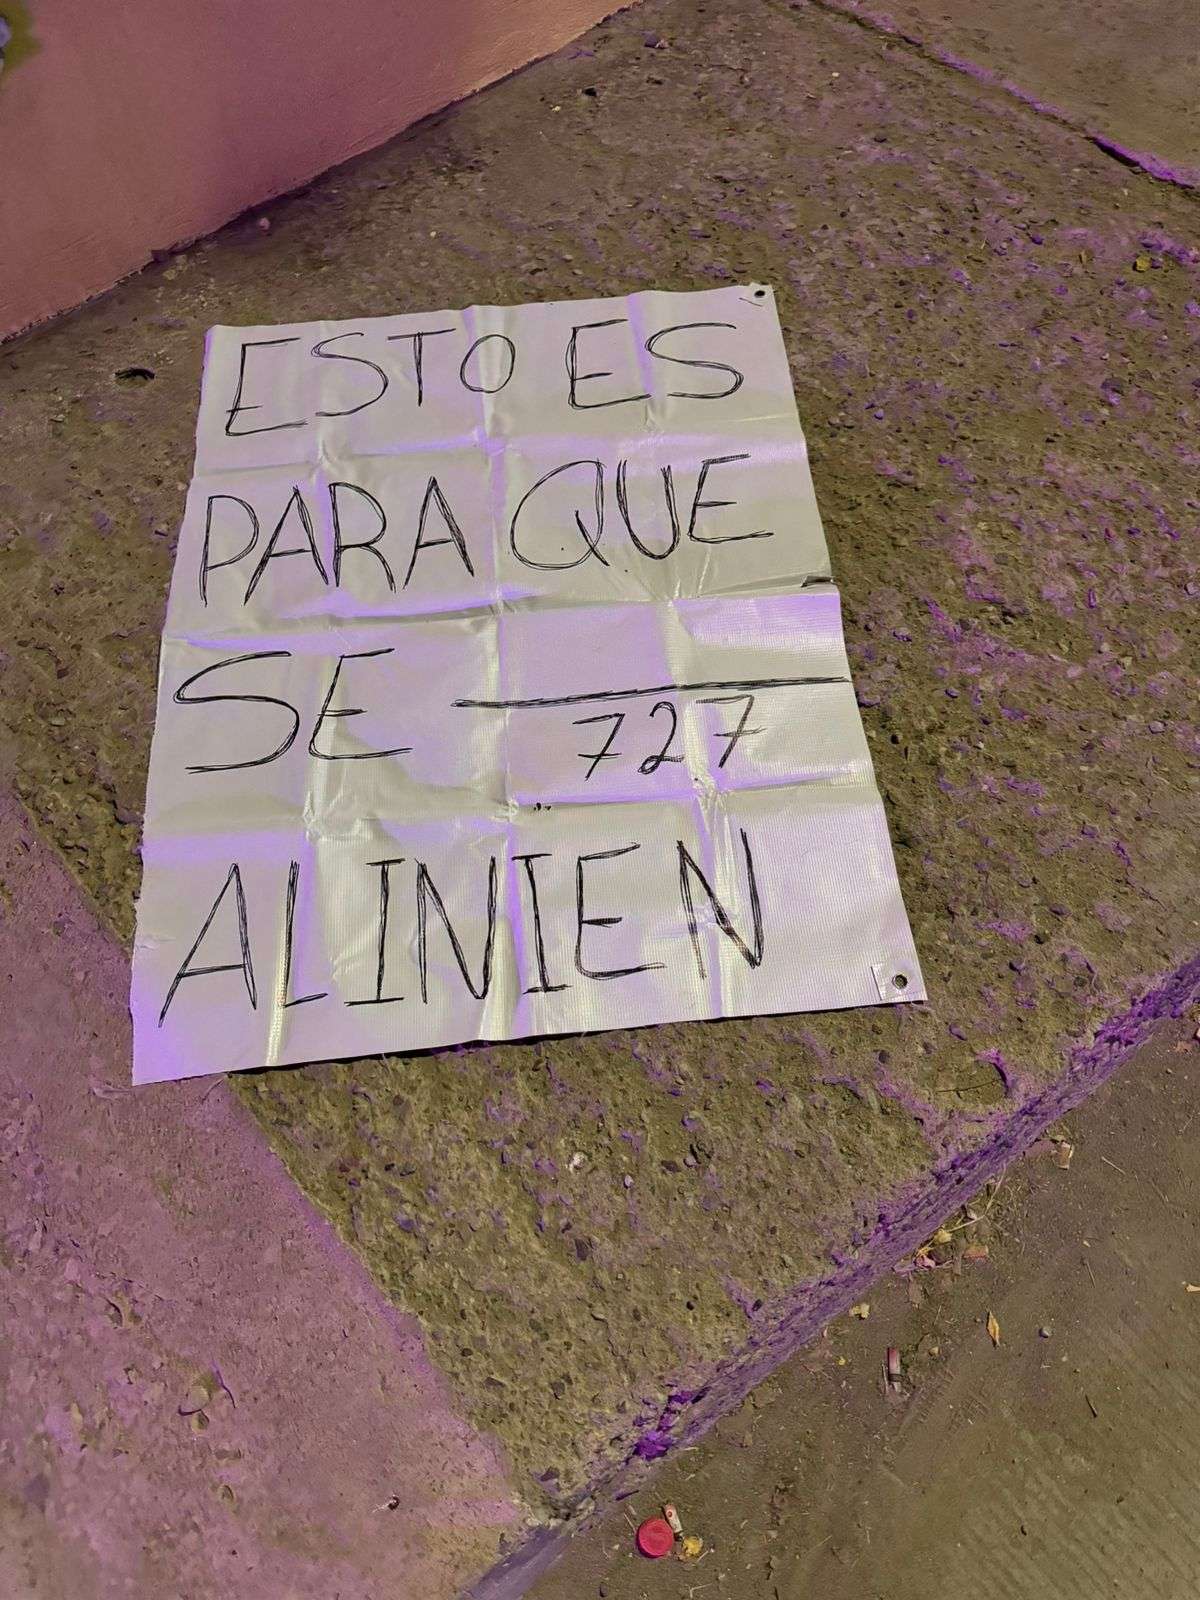 ESTO ES
PARA QUE
SE
727
ALINIEN